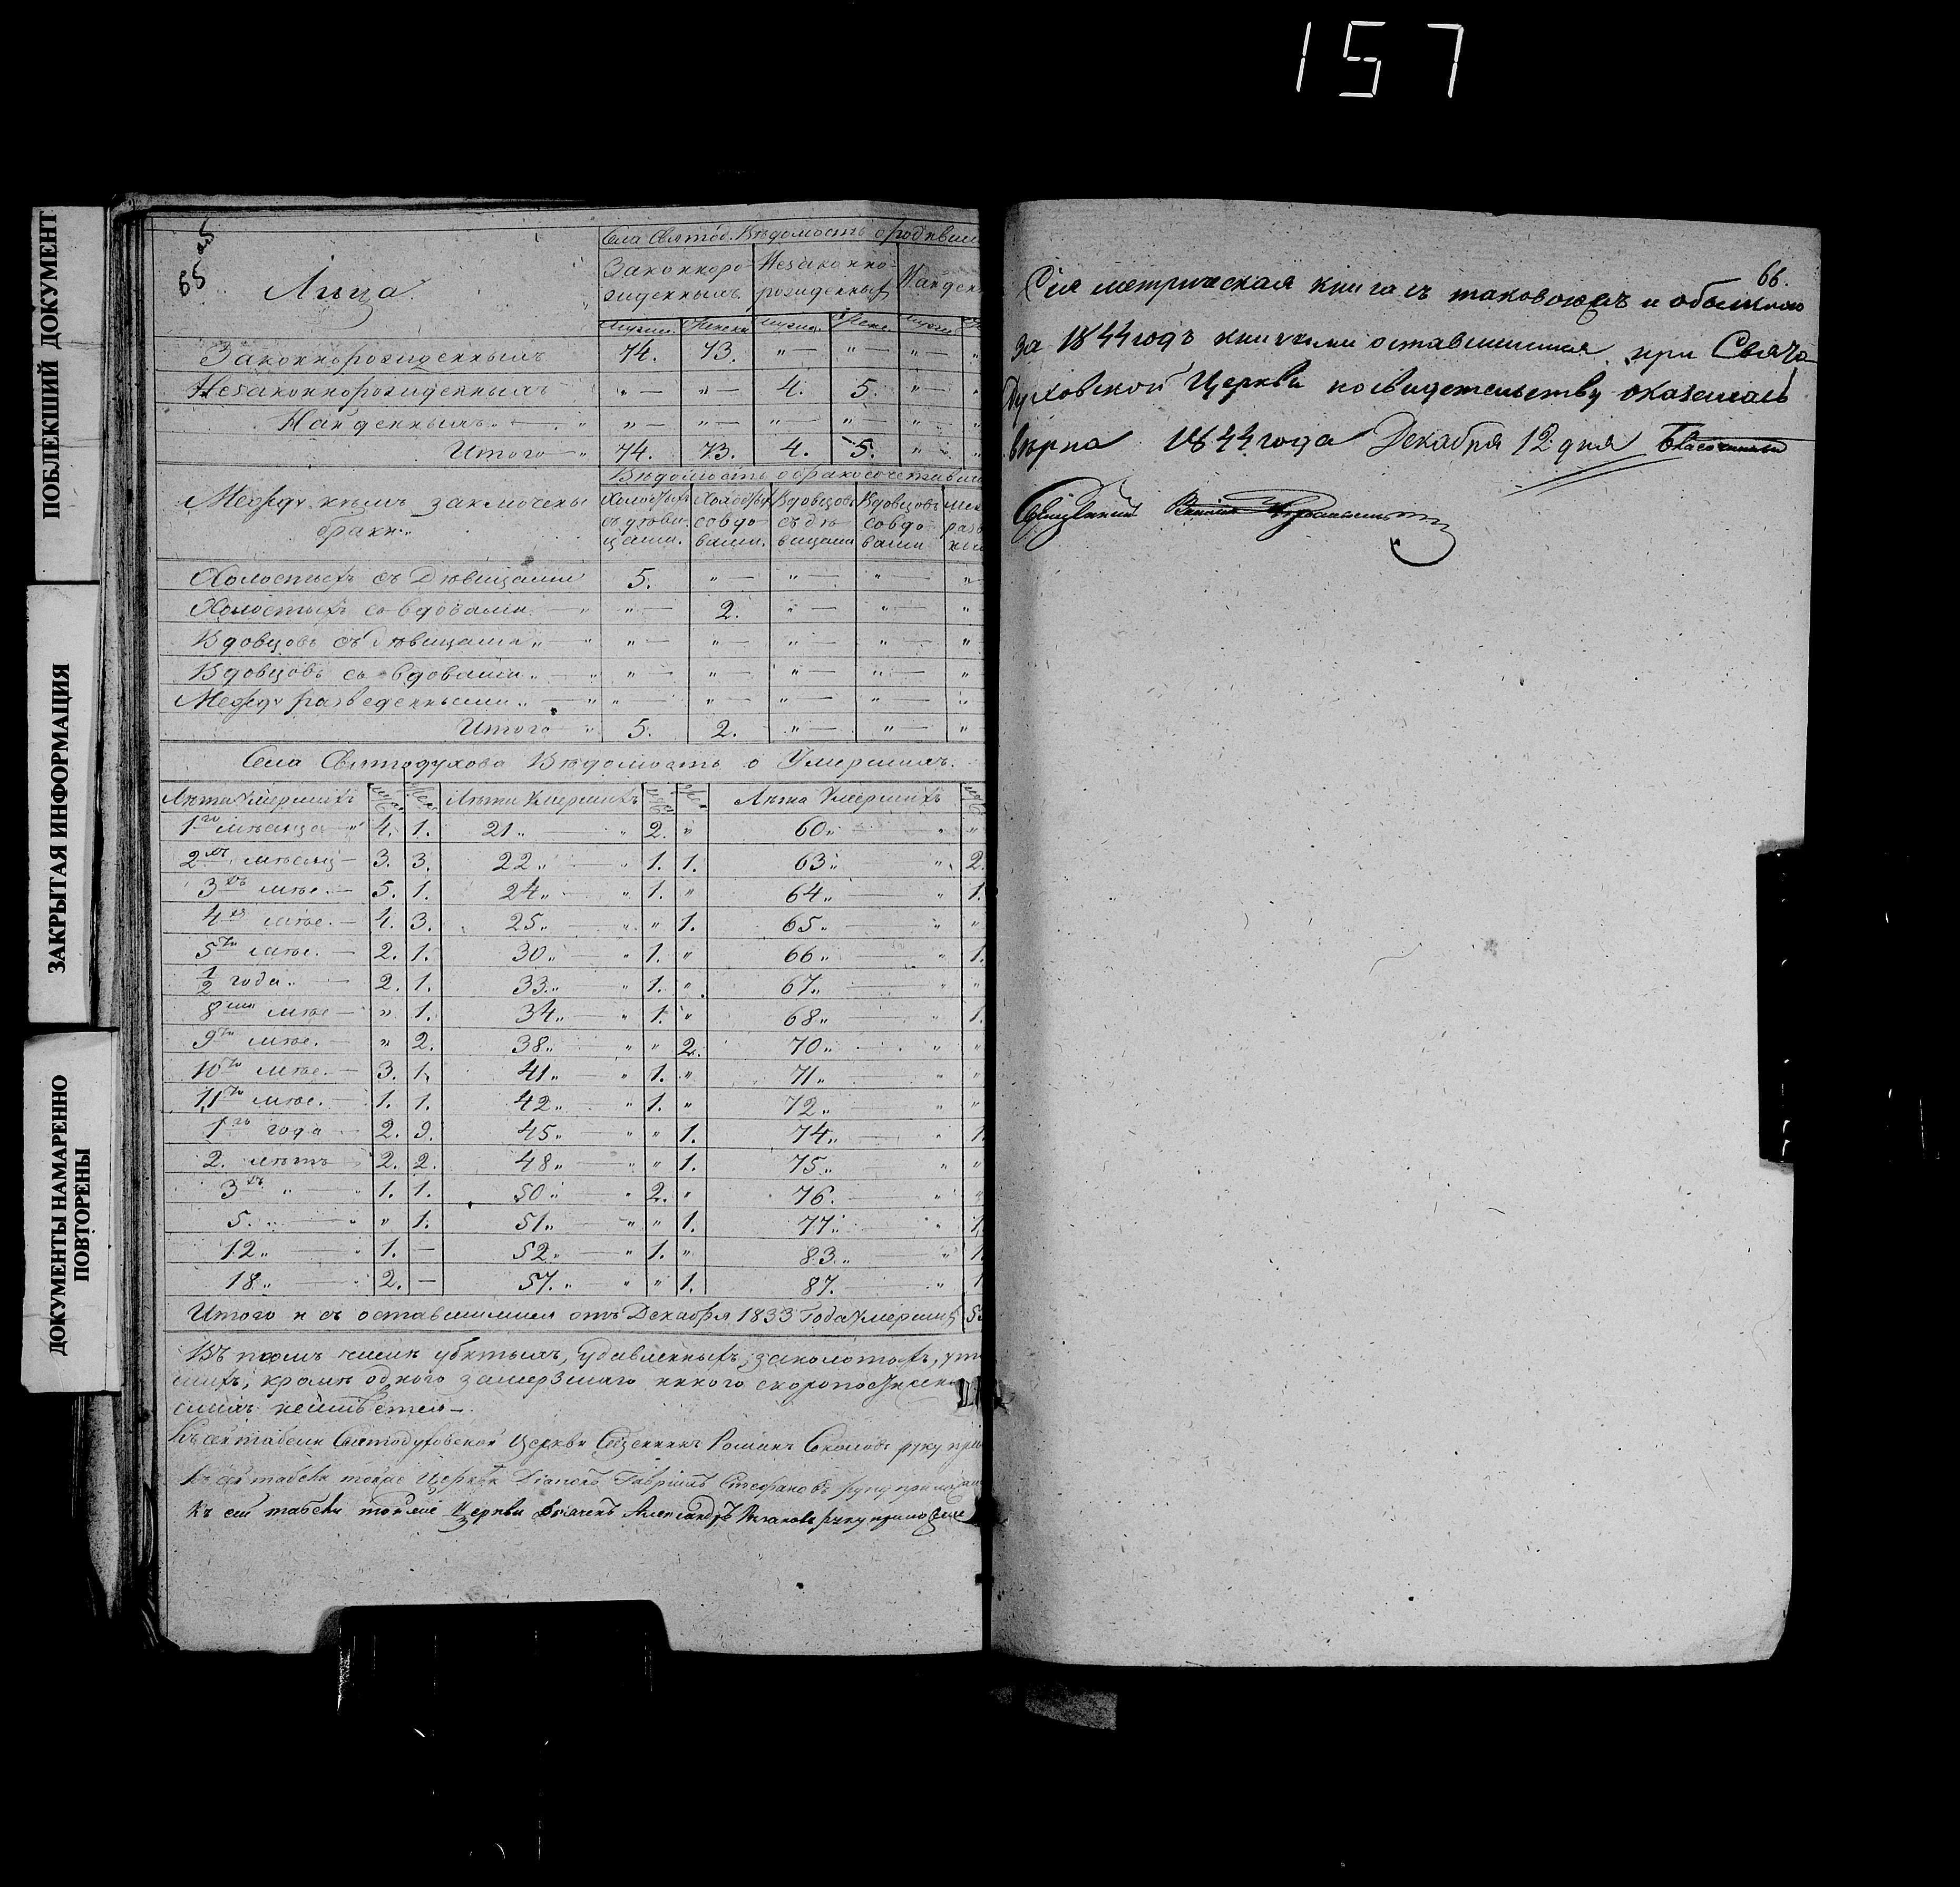 157
ПОБЛЕКШИЙ ДОКУМЕНТ
ЗАКРЫТАЯ ИНФОРМАЦИЯ
ДОКУМЕНТЫ НАМАРЕННО
ПОВТОРЕНЫ
65
Села Святод. Вѣдомость о родивши
Лица.
Законноро Незаконно- Найден
жденнымъ рожденных
Законнорожденнымъ 74. 73. „ — „ — „ —
Незаконнорожденнымъ „ — „ — 4. 5. „ —
Найденнымъ „ — „ — „ — „ — „ —
Итого — „ 74. 73. 4. 5. „ —
Вѣдомость о бракосочетавши
Между кѣмъ заключены
браки
Холостых Холостых Вдовцовъ Вдовцовъ
съ дѣви со вдо съ дѣ со вдо
цами. вами. вицами вами
Холостыхъ съ Дѣвицами 5. „ — „ — „ — „
Холостыхъ со вдовами — „ „ — 2. „ — „ — „
Вдовцовъ съ дѣвицами „ — „ „ — „ — „ — „ — „
Вдовцовъ со вдовами „ — „ „ — „ — „ — „ — „
Между разведенными „ — „ „ — „ — „ — „ — „
Итого — „ 5. 2. „ — „ — „
Села Святодухова Вѣдомость о Умершихъ.
Лѣта Умершихъ Лѣта Умершихъ Лѣта Умершихъ
1го мѣсяца — „ 4. 1. 21 „ — „ 2. „ 60 „ — „ „
2хъ мѣсяц — 3. 3. 22 „ — „ 1. 1. 63 „ — „ 2.
3хъ мѣс. — 5. 1. 24 „ — „ 1. „ 64 „ — „ 1.
4хъ мѣс. — 4. 3. 25 „ — „ „ 1. 65 „ — „ „
5ти мѣс. — 2. 1. 30 „ — „ 1. „ 66 „ — „ 1.
1/2 года „ — 2. 1. 33 „ — „ 1. „ 67 „ — „ „
8ми мѣс — „ 1. 34 „ — „ 1. „ 68 „ — „ 1.
9ти мѣс. — „ 2. 38 „ — „ „ 2. 70 „ — „ „
10ти мѣс. — 3. 1. 41 „ — „ 1. „ 71 „ — „ „
11ти мѣс. — 1. 1. 42 „ — „ 1. „ 72 „ — „ „
1го года — 2. 9. 45 „ — „ „ 1. 74 „ — „ 1.
2. лѣтъ — 2. 2. 48 „ — „ „ 1. 75 „ — „ „
3хъ „ — „ 1. 1. 50 „ — „ 2. „ 76. — „ „
5. „ — „ „ 1. 51 „ — „ „ 1. 77 „ — „ 1.
12 „ — „ 1. — 52 „ — „ 1. „ 83 „ — „ 1.
18 „ — „ 2. — 57 „ — „ „ 1. 87. — „ 1
Итого и съ оставшимися отъ Декабря 1833 Года Умерших
Въ томъ числѣ убитыхъ, удавленныхъ, заколотыхъ,
шихъ, кромѣ одного замерзшаго никого скоропостижно
Къ сей табели Святодуховской Церкви Священникъ Романъ руку при
Къ сей табели тойже Церкви Діаконъ Гавріилъ Стефановъ руку приложил
Къ сей табели тойже Церкви Дьячекъ Александръ руку приложилъ
66.
Сія метрическая книга съ таковоюжъ и обыскною
за 1844 годъ книгами оставшимися при Свято
Духовской Церкви по свидетельству оказалась
вѣрна 1844 года Декабря 12 дня Благочинный
Священникъ